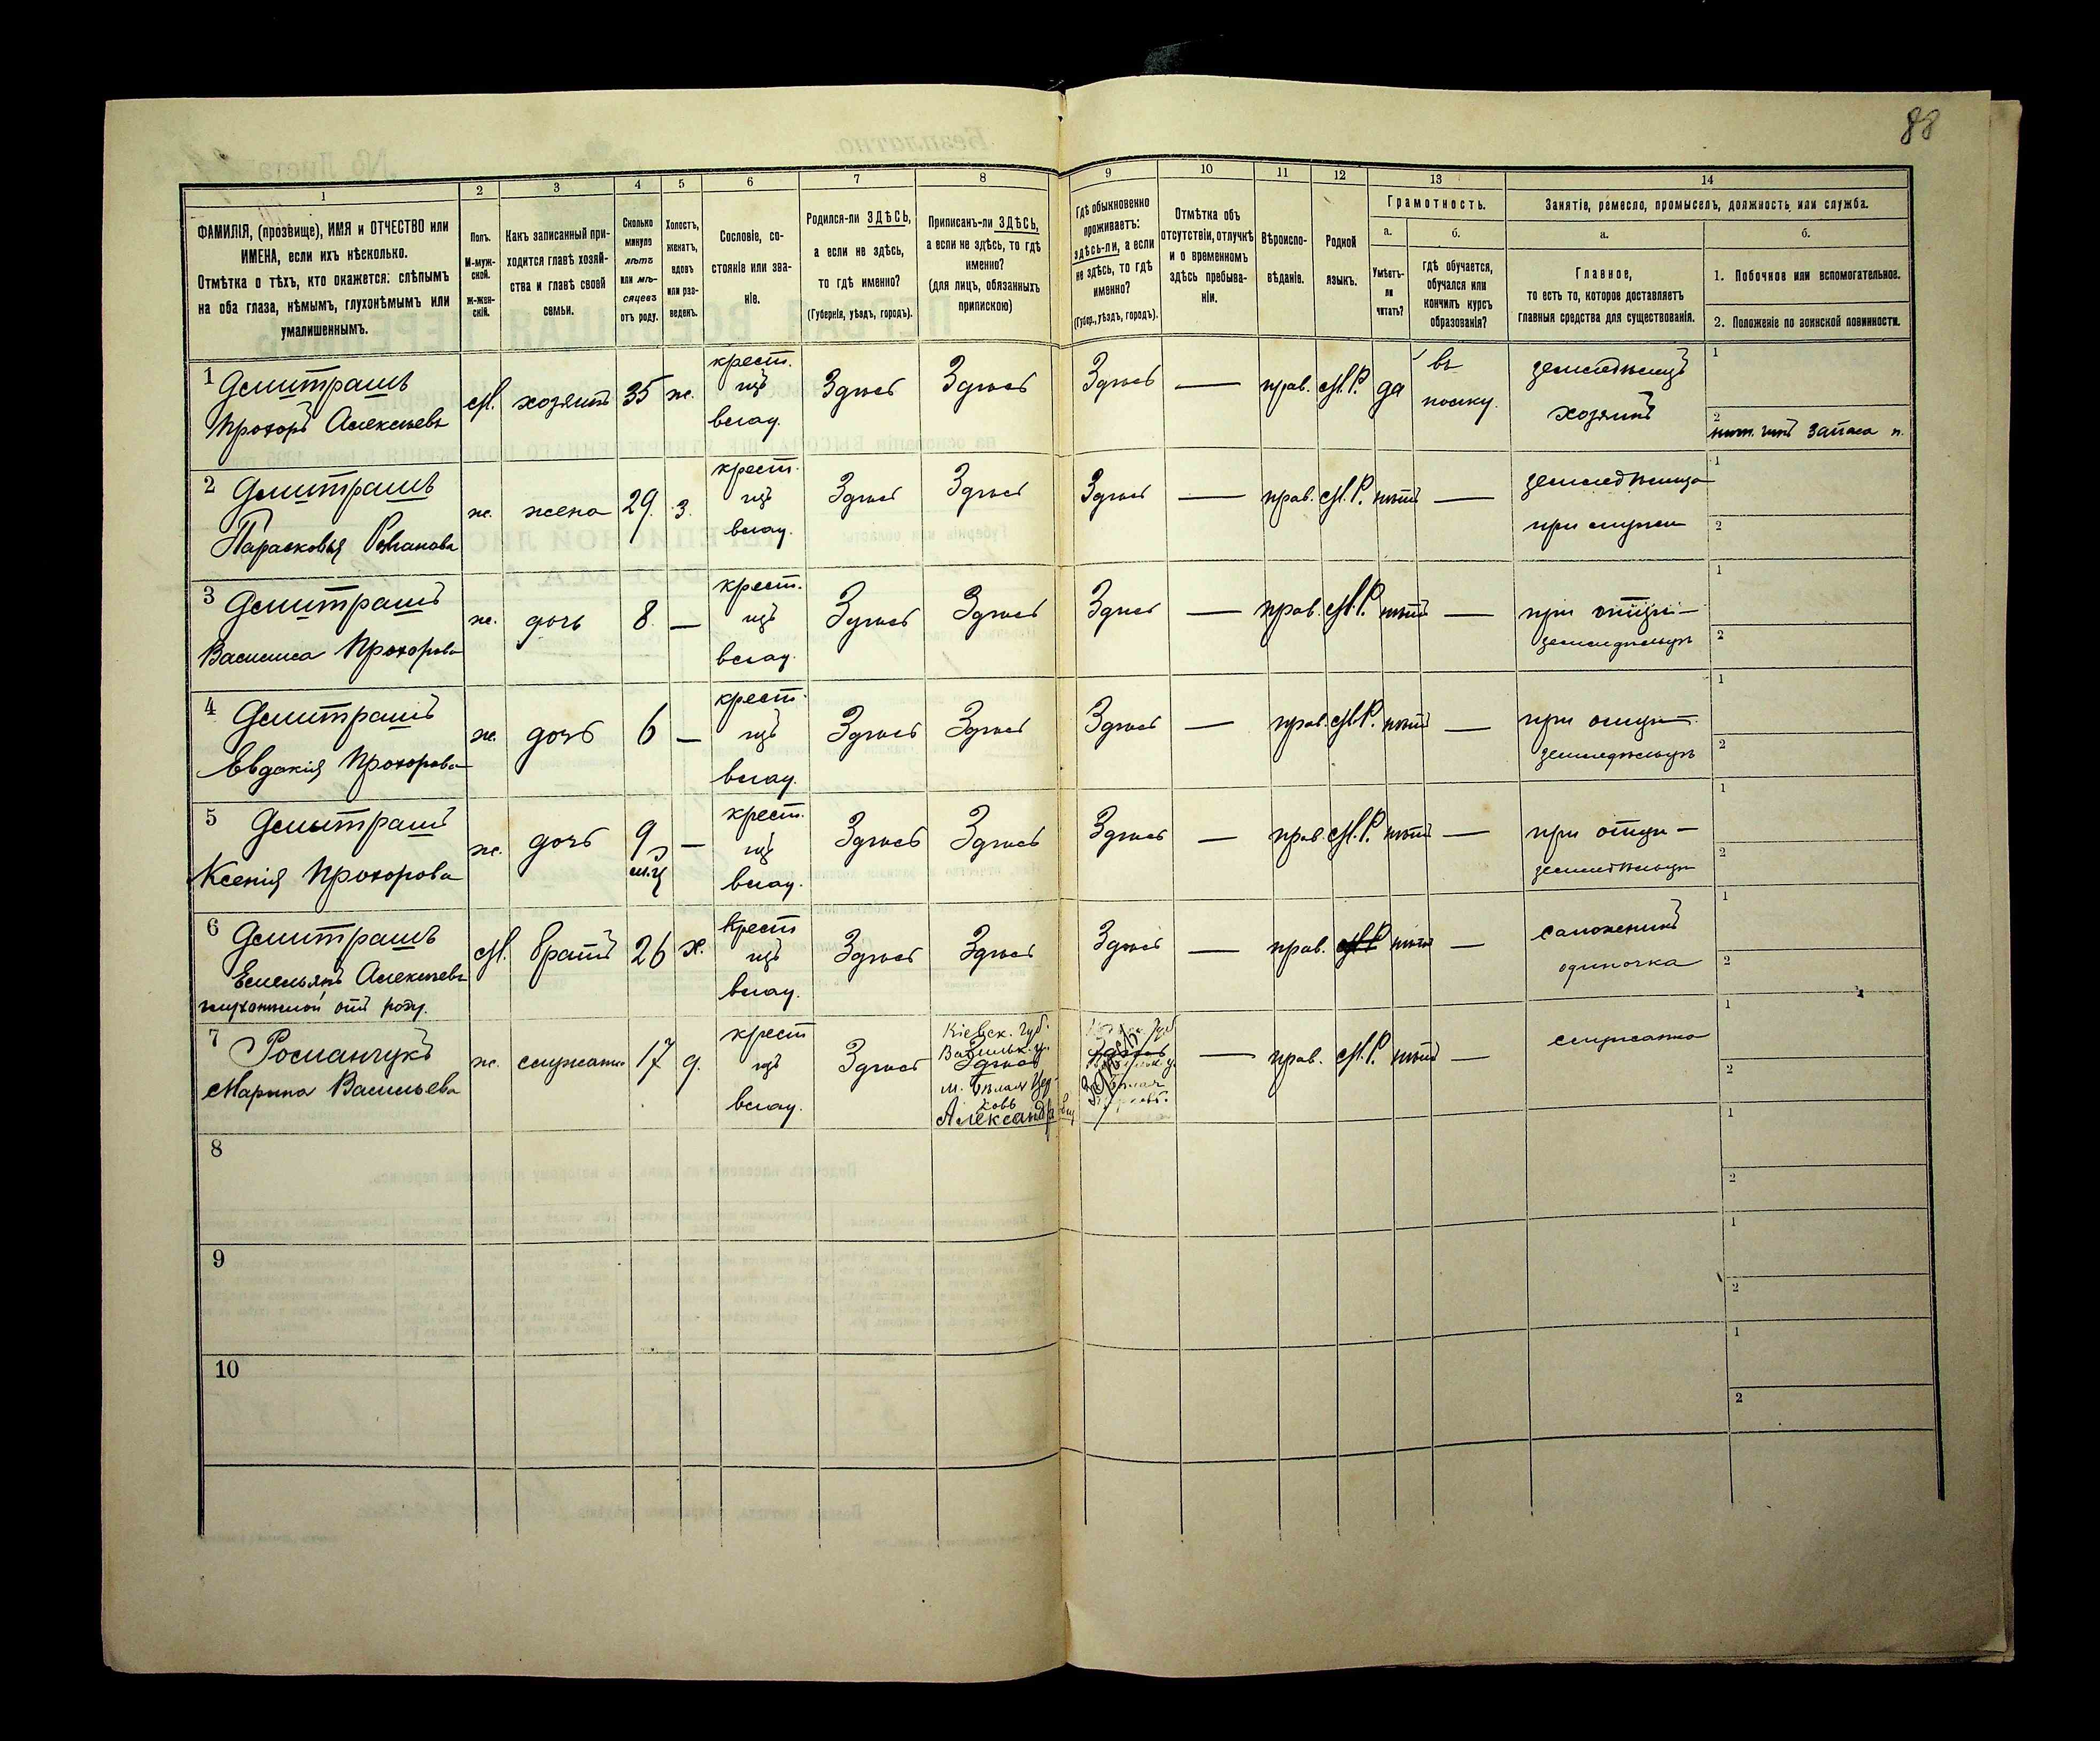 88
1 2 3 4 5 6 7 8 9 10 11 12 13 14
ФАМИЛІЯ, (прозвище), ИМЯ и ОТЧЕСТВО или
ИМЕНА, если ихъ нѣсколько.
Отмѣтка о тѣхъ, кто окажется: слѣпымъ
на оба глаза, нѣмымъ, глухонѣмымъ или
умалишеннымъ.
Полъ.
М-муж-
ской.
Ж-жен-
скій.
Какъ записанный при-
ходится главѣ хозяй-
ства и главѣ своей
семьи.
Сколько
минуло
лѣтъ
или мѣ-
сяцевъ
отъ роду.
Холостъ,
женатъ,
вдовъ
или раз-
веденъ.
Сословіе, со-
стояніе или зва-
ніе.
Родился-ли ЗДѢСЬ,
а если не здѣсь,
то гдѣ именно?
(Губернія, уѣздъ, городъ).
Приписанъ-ли ЗДѢСЬ,
а если не здѣсь, то гдѣ
именно?
(для лицъ, обязанныхъ
припискою)
Гдѣ обыкновенно
проживаетъ:
здѣсь-ли, а если
не здѣсь, то гдѣ
именно?
(Губер., уѣздъ, городъ).
Отмѣтка объ
отсутствіи, отлучкѣ
и о временномъ
здѣсь пребыва-
ніи.
Вѣроиспо-
вѣданіе.
Родной
языкъ.
Грамотность.
а.
Умѣетъ-
ли
читать?
б.
гдѣ обучается,
обучался или
кончилъ курсъ
образованія?
Занятіе, ремесло, промыселъ, должность или служба.
а.
Главное,
то есть то, которое доставляетъ
главныя средства для существованія.
б.
1. Побочное или вспомогательное.
2. Положеніе по воинской повинности.
1 Демитрашъ
Прохоръ Алексѣевъ
М. хозяинъ 35 ж.
крест.
изъ
влад.
Здѣсь Здѣсь Здѣсь — прав. М.Р. да
въ
полку.
земледѣлецъ
хозяинъ
1
2
ниж. чинъ запаса
2 Демитрашъ
Парасковья Романова
ж. жена 29 з.
крест.
изъ
влад.
Здѣсь Здѣсь Здѣсь — прав. М.Р. нѣтъ —
земледѣлица
при мужи
1
2
3 Демитрашъ
Василиса Прохорова
ж. дочь 8 —
крест.
изъ
влад.
Здѣсь Здѣсь Здѣсь — прав. М.Р. нѣтъ —
при отци —
земледѣльци
1
2
4 Демитрашъ
Евдокія Прохорова
ж. дочь 6 —
крест.
изъ
влад.
Здѣсь Здѣсь Здѣсь — прав. М.Р. нѣтъ —
при отци —
земледѣльци
1
2
5 Демитрашъ
Ксенія Прохорова
ж. дочь 9 —
крест.
изъ
влад.
Здѣсь Здѣсь Здѣсь — прав. М.Р. нѣтъ —
при отци —
земледѣльци
1
2
6 Демитрашъ
Емельянъ Алексѣевъ
глухонѣмой отъ роду.
М. братъ 26 х.
крест
изъ
влад.
Здѣсь Здѣсь Здѣсь — прав. М.Р. нѣтъ —
сапожникъ
одиночка
1
2
7 Романчукъ
Марина Васильева
ж. служанка 17 д.
крест
изъ
влад.
Здѣсь
Кіевск. губ.
Васильк. у.
Здѣсь
м. Бѣлая Цер-
ковь
Александр
Здѣсь
— прав. М.Р. нѣтъ —
служанка
1
2
8
1
2
9
1
2
10
1
2